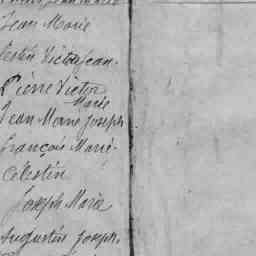 Jean Marie
Victor Jean-
Pierre Victor
Marie
Jean Marie Joseph
François Marie-
Célestin
Joseph Marie
Augustin Joseph-